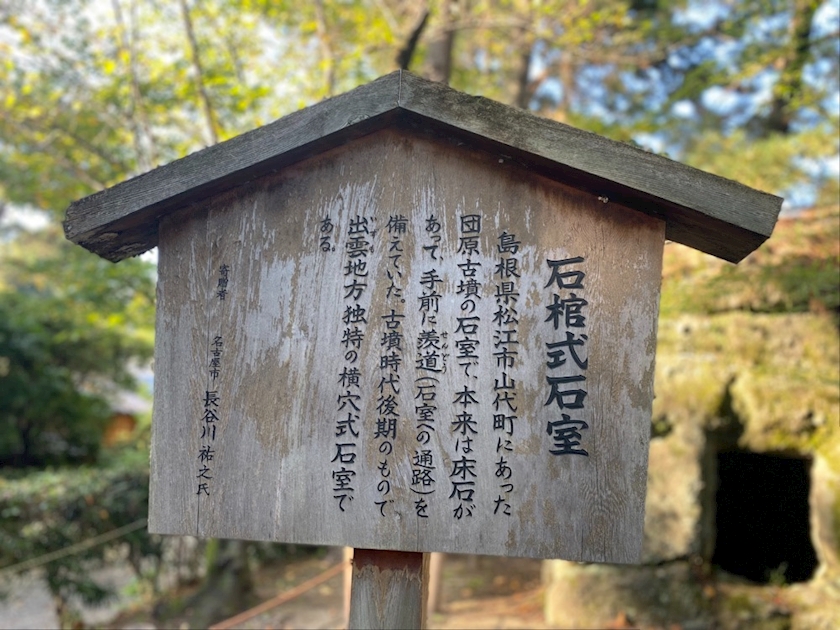 石棺式石室
島根県松江市山代町にあった
団原古墳の石室で、本来は床石が
あって、手前に羨道(石室への通路)を
せんどう
備えていた。古墳時代後期のもので、
出雲地方独特の横穴式石室で
いずも
ある。
寄贈者 名古屋市 長谷川祐之氏